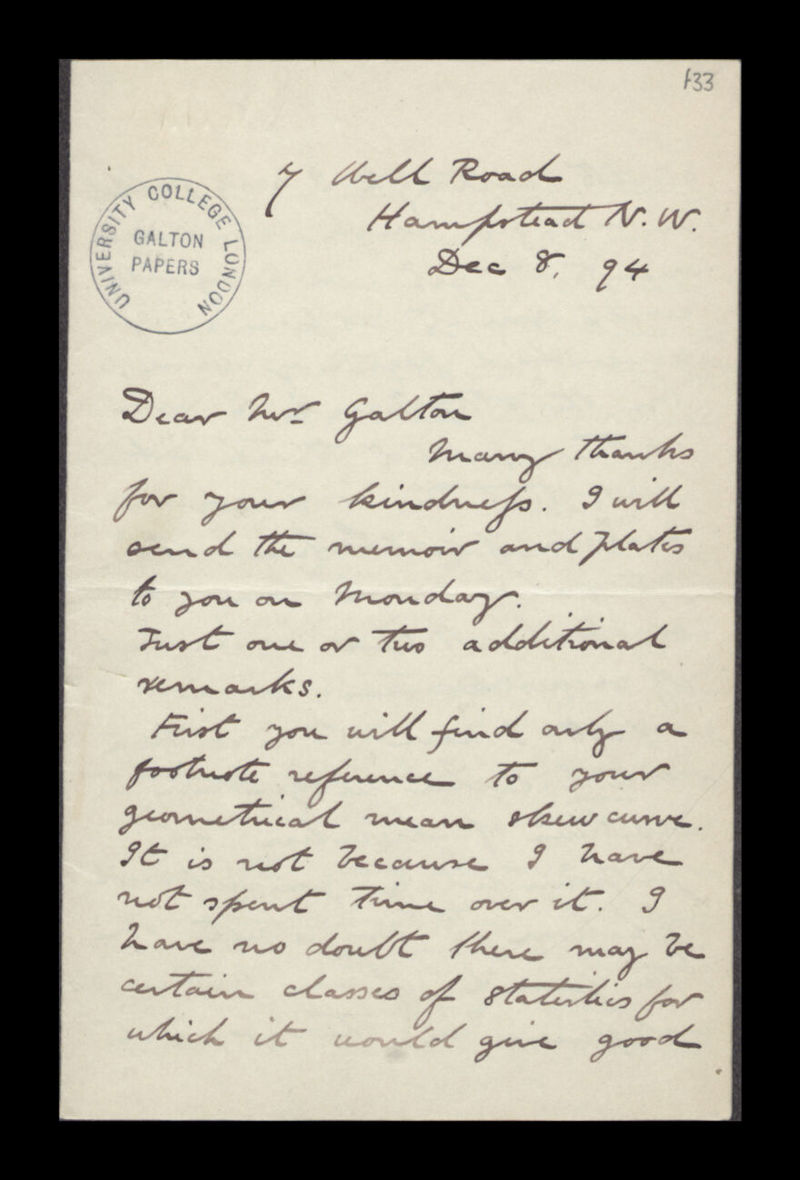 133
7 Well Road
Hampstead N.W.
Dec 8, 94
UNIVERSITY COLLEGE LONDON
GALTON
PAPERS
Dear Mr Galton
Many thanks
for your kindness. I will
send the memoir and plates
to you on Monday.
Just one or two additional
remarks.
First you will find only a
footnote reference to your
geometrical mean skew curve.
It is not because I have
not spent time over it. I
have no doubt there may be
certain classes of statistics for
which it would give good